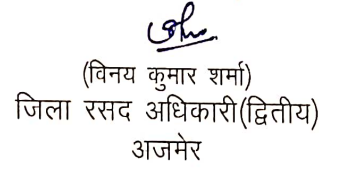 (विनय कुमार शर्मा)
जिला रसद अधिकारी(द्वितीय)
अजमेर